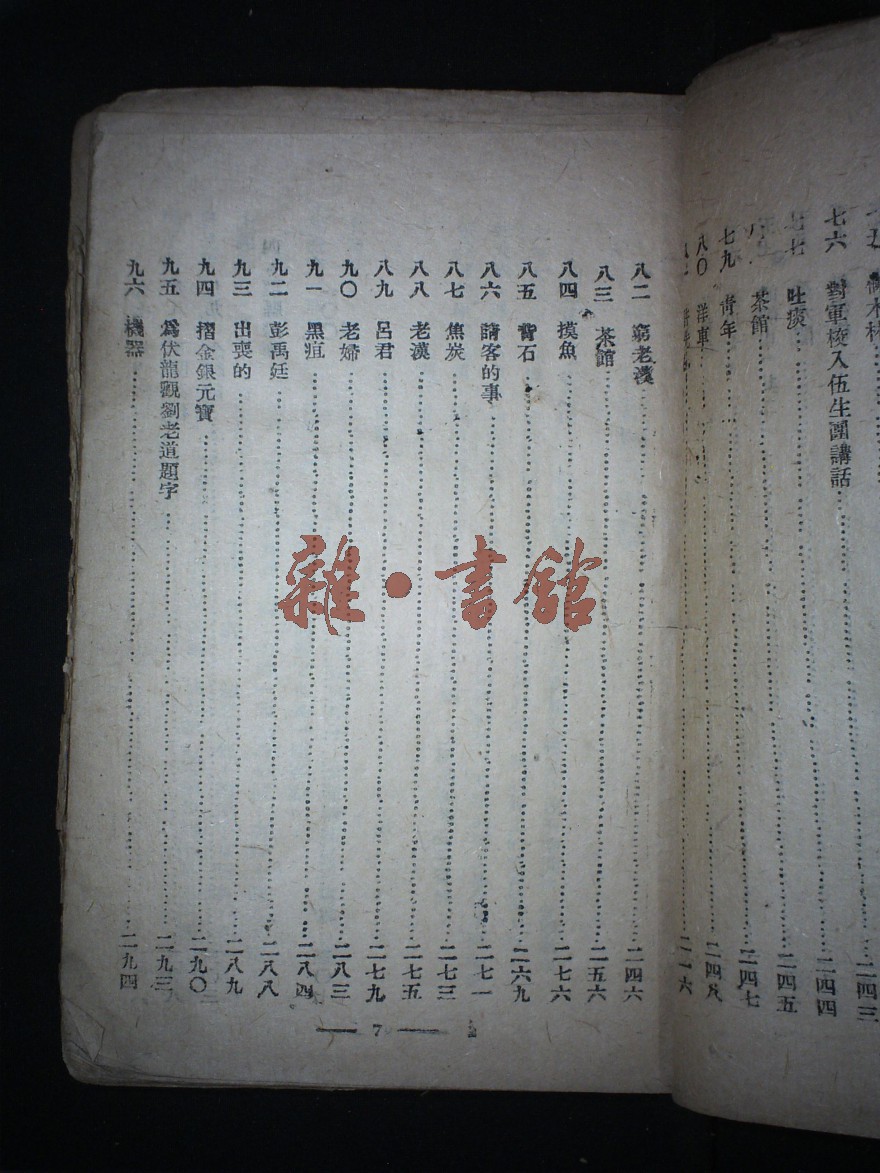 七六 對軍校入伍生團講話 二四四
七七 吐痰 二四五
茶館 二四七
七九 靑年
八〇 洋車
八二 窮老漢 二四六
八三 茶館 二五六
八四 摸魚 二七六
八五 背石 二六九
八六 請客的事 二七一
八七 焦炭 二七三
八八 老漢 二七五
八九 呂君 二七九
九〇 老婦 二八三
九一 黑疸 二八四
九二 彭禹廷 二八八
九三 出喪的 二八九
九四 摺金銀元寶 二九〇
九五 爲伏龍觀劉老道題字 二九三
九六 機器 二九四
— 7 —
雜·書館